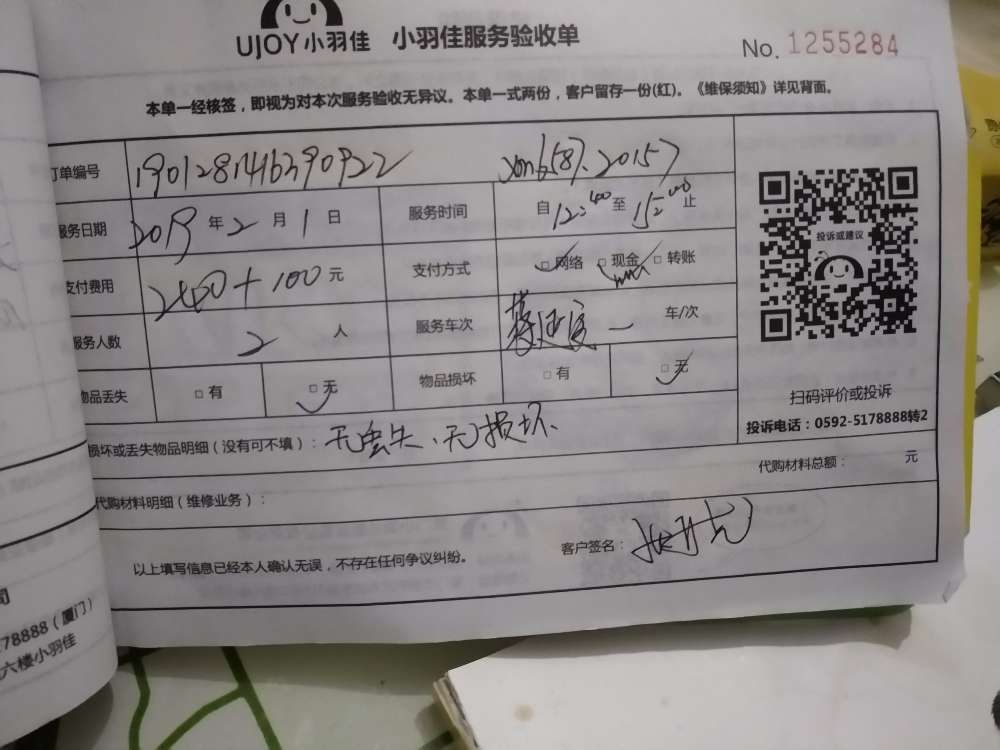 UJOY小羽佳 小羽佳服务验收单
No. 1255284
本单一经核签，即视为对本次服务验收无异议。本单一式两份，客户留存一份(红)。《维保须知》详见背面。
订单编号 1901281416390922
服务日期 2019 年 2 月 1 日 服务时间 自 12:00 至 15:00 止
支付费用 +100 元 支付方式 □ 网络 □ 现金 □ 转账
服务人数 2 人 服务车次 一 车/次
物品丢失 □ 有 □ 无 物品损坏 □ 有 □ 无
投诉或建议
扫码评价或投诉
投诉电话：0592-5178888转2
损坏或丢失物品明细（没有可不填）：无丢失、无损坏
代购材料总额： 元
代购材料明细（维修业务）：
以上填写信息已经本人确认无误，不存在任何争议纠纷。
客户签名：
司
78888（厦门）
六楼小羽佳